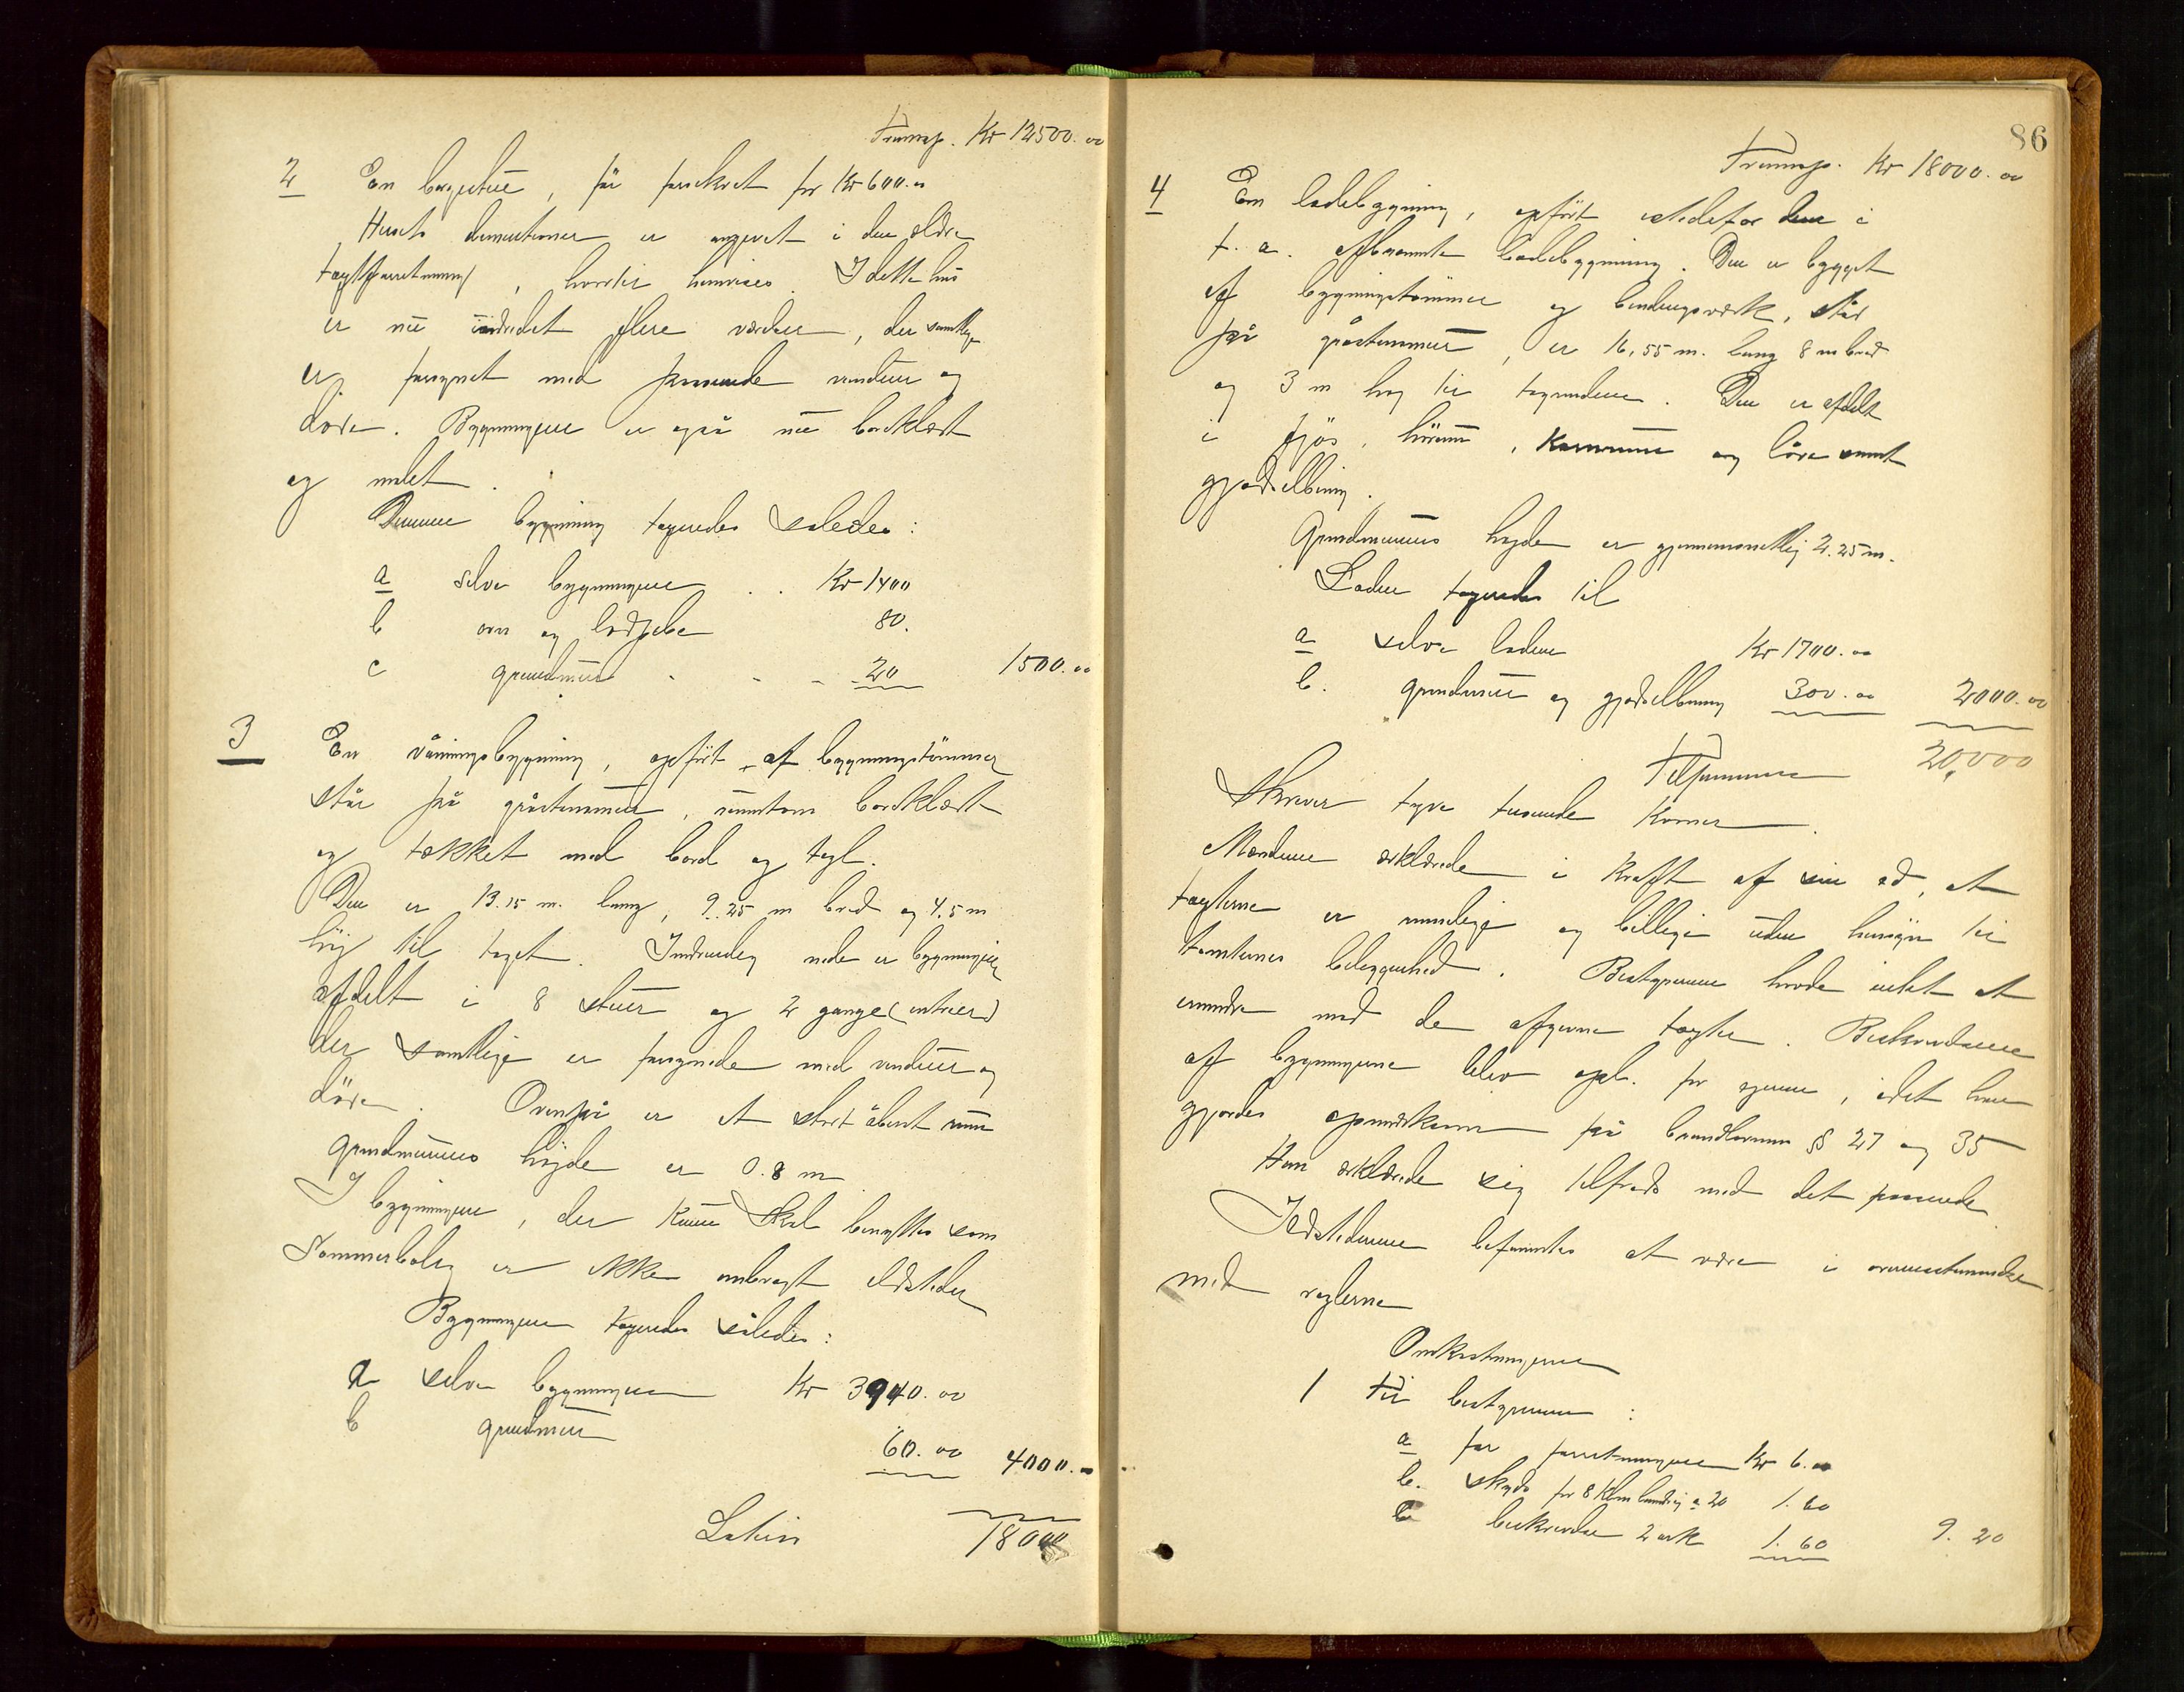 Transp. Kr 12500.00
2 En borgestue, för forsikret for Kr 600.00
Husets dimentioner er angivet i den ældre
taxtforretning, hvortil henvises. I dette hus
er nu indredet flere værelser, der samtlige
er forsynet med passende vinduer og
döre. Bygningen er også nu bordklædt
og malet.
Denne bygning taxeredes således:
a selve bygningen . . Kr 1400
b ovn og 80.
c grundmur - - - 20 1500.00
3 En våningsbygning, opfört af bygningstömmer
står på gråstensmur, bordklædt
og tækket med bord og tegl.
Den er 13.15 m. lang, 9.25 m bred og 4.5 m
höj til taget. Indvendig nede er bygningen
afdelt i 8 stuer og 2 gange (entreer)
der samtlige er forsynede med vinduer og
döre. Ovenpå er et stort åbent rum
Grundmurens höjde er 0.8 m
I bygningen, der kun skal benyttes som
Sommerbolig er ikke anbragt ildsteder
Bygningen taxeredes således:
a selve bygningen Kr 3940.00
b grundmur
60.00 4000.00
Latus 18000
86
Transp. Kr 18000.00
4 En ladebygning, opfört istedetfor den i
f. a. afbrændte ladebygning. Den er bygget
af bygningstömmer og bindingsværk, står
på gråstensmur, er 16,55 m. lang 8 m bred
og 3 m höj til tagrenderne. Den er afdelt
i fjös, hörum, kornrum og låve samt
gjödselbing.
Grundmurens höjde er gjennemsnitlig 2.25 m.
Laden taxeredes til
a selve laden Kr 1700.00
b. grundmur og gjödselbing 300.00 2000.00
Tilsammen 20,000
Skriver tyve tusende Kroner.
Mændene erklærede i kraft af sin ed, at
taxterne er rimelige og billige uden hensyn til
tomternes beliggenhed. Bestyreren havde intet at
erindre mod de afgivne taxter. Beskrivelsen
af bygningerne blev opl. for ejeren, idet han
gjordes opmærksom på brandlovens §§ 27 og 35
Han erklærede sig tilfreds med det passerede
Ildstederne befandtes at være i overensstemmelse
med reglerne
Omkostningerne
1 til bestyreren:
a for forretningen Kr 6.00
b. skyds for 8 Klm landvej a 20 1.60
c beskrivelse 2 ark 1.60 9.20